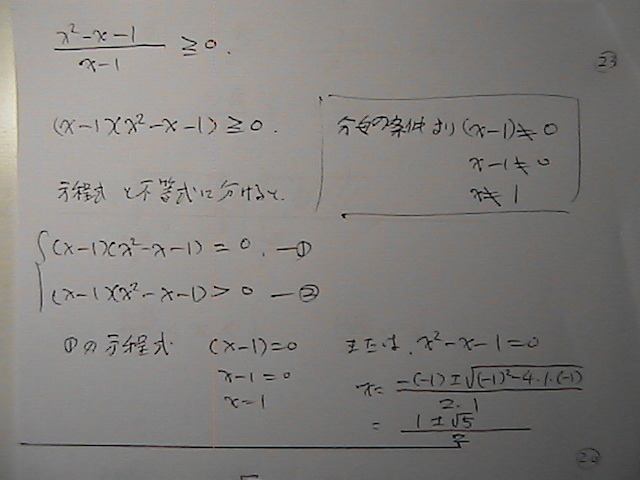 (x²-x-1)/(x-1) ≧ 0.
23
(x-1)(x²-x-1) ≧ 0.
分母の条件より (x-1) ≠ 0
x-1 ≠ 0
x ≠ 1
方程式と不等式に分けると.
(x-1)(x²-x-1) = 0. ―①
(x-1)(x²-x-1) > 0 ―②
①の方程式 (x-1)=0 または. x²-x-1=0
x-1=0
x=1
x= (-(-1)±√((-1)²-4・1・(-1)))/(2・1)
= (1±√5)/2